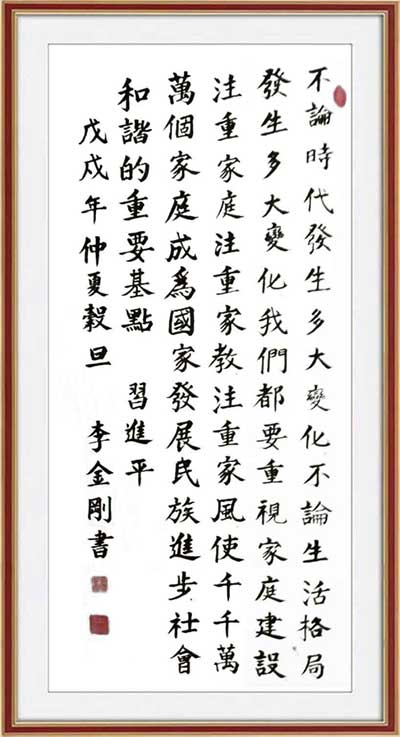 不論時代發生多大變化不論生活格局
發生多大變化我們都要重視家庭建設
注重家庭注重家教注重家風使千千萬
萬個家庭成為國家發展民族進步社會
和諧的重要基點 習進平
戊戌年仲夏穀旦 李金剛書